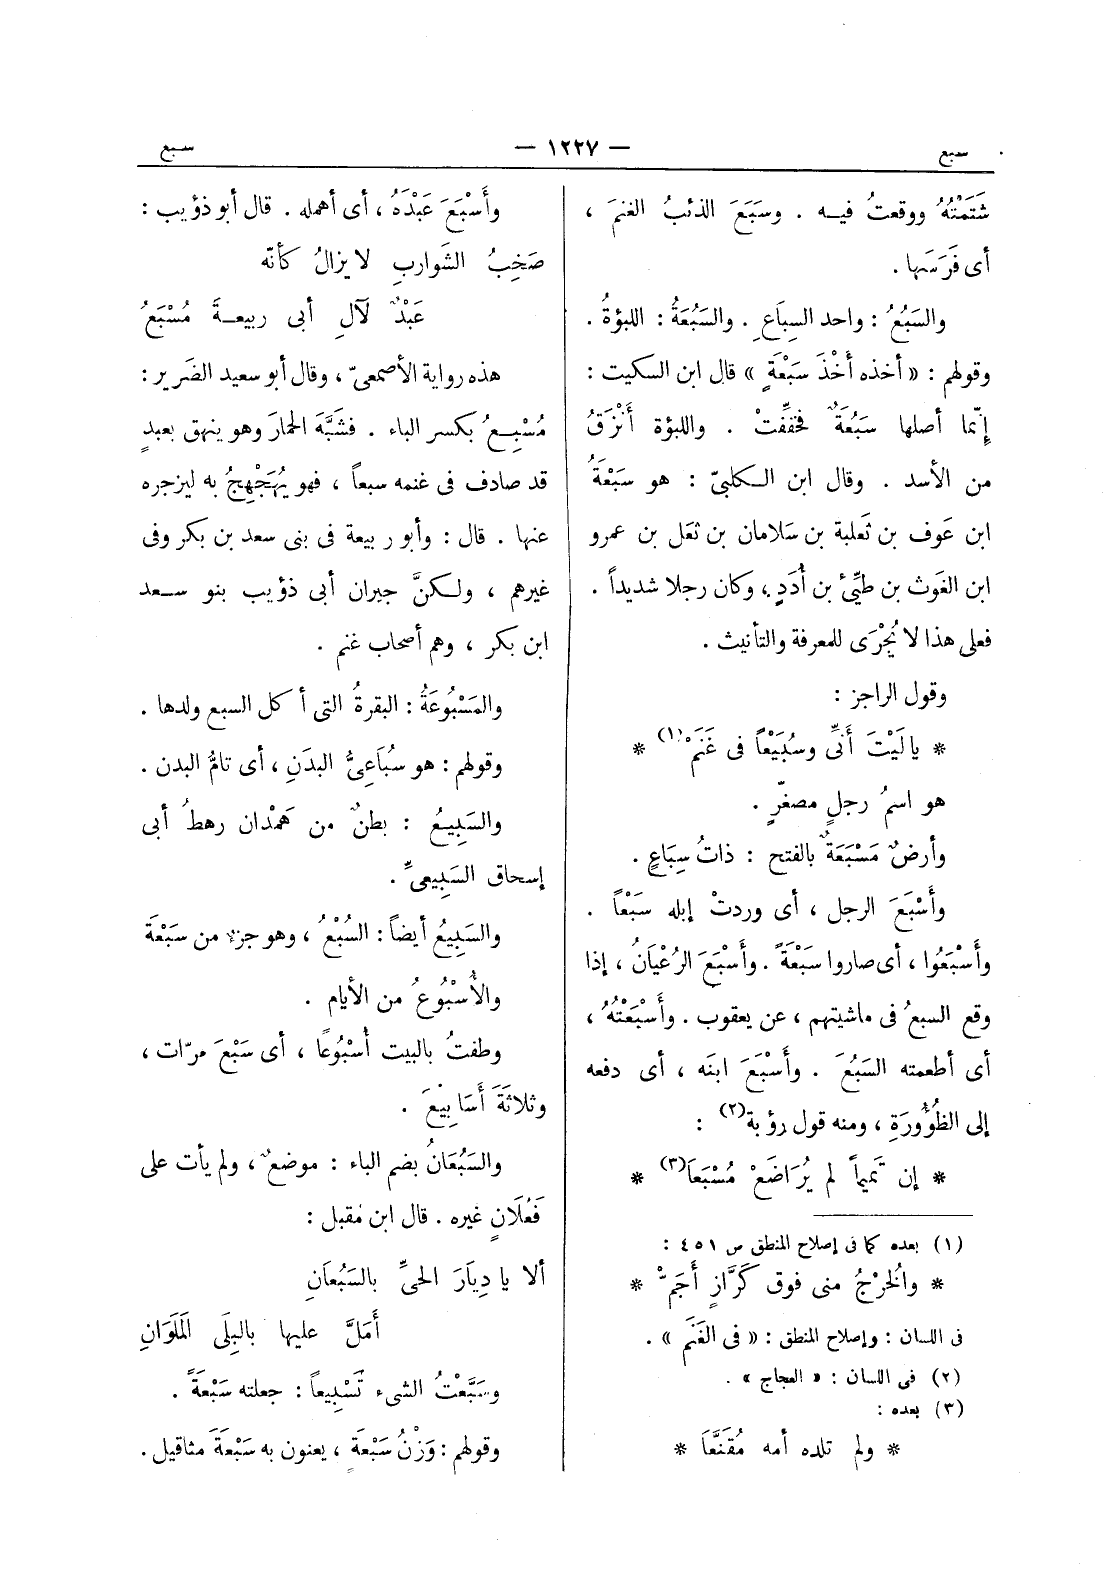 سبع
— ١٢٢٧ —
سبع
شَتَمْتُهُ ووقعتُ فيه . وسَبَعَ الذئبُ الغنمَ ،
أى فَرَسَها .
والسَبُعُ : واحد السِبَاعِ . والسَبُعَةُ : اللبؤةُ .
وقولهم : « أخذه أَخْذَ سَبْعَةٍ » قال ابن السكيت :
إنّما أصلها سَبُعَةٌ فخفِّفتْ . واللبؤة أَنْزَقُ
من الأسد . وقال ابن الكلبىّ : هو سَبْعَةُ
ابن عَوف بن ثَعلبة بن سَلامان بن ثعَل بن عمرو
ابن الغَوث بن طيِّئ بن أُدَدٍ ، وكان رجلا شديداً .
فعلى هذا لا يُجْرَى للمعرفة والتأنيث .
وقول الراجز :
* يا لَيْتَ أَنِّى وسُبَيْعاً فى غَنَمْ (١) *
هو اسمُ رجلٍ مصغّرٍ .
وأرضٌ مَسْبَعَةٌ بالفتح : ذاتُ سِبَاعٍ .
وأَسْبَعَ الرجل ، أى وردتْ إبله سَبْعاً .
وأَسْبَعُوا ، أى صاروا سَبْعَةً . وأَسْبَعَ الرُعْيَانُ ، إذا
وقع السبعُ فى ماشيتهم ، عن يعقوب . وأَسْبَعْتُهُ ،
أى أطعمته السَبُعَ . وأَسْبَعَ ابنَه ، أى دفعه
إلى الظُؤُورَةِ ، ومنه قول رؤبة (٢) :
* إن تَمِيماً لم يُرَاضَعْ مُسْبَعَا (٣) *
(١) بعده كما فى إصلاح المنطق ص ٤٥١ :
* والخُرْجُ منى فوق كَرَّازٍ أَجَمّْ *
فى اللسان : وإصلاح المنطق : « فى الغَنَم » .
(٢) فى اللسان : « العجاج » .
(٣) بعده :
* ولم تلده أمه مُقَنَّعَا *
وأَسْبَعَ عَبْدَهُ ، أى أهمله . قال أبو ذؤيب :
صَخِبُ الشَوارِبِ لا يزالُ كأنّه
عَبْدٌ لآلِ أبى ربيعةَ مُسْبَعُ
هذه رواية الأصمعىّ ، وقال أبو سعيد الضَرير :
مُسْبِعُ بكسر الباء . فشَبَّه الحمارَ وهو ينهق بعبدٍ
قد صادف فى غنمه سبعاً ، فهو يُهَجْهِجُ به ليزجره
عنها . قال : وأبو ربيعة فى بنى سعد بن بكر وفى
غيرهم ، ولكنَّ جيران أبى ذؤيب بنو سعد
ابن بكر ، وهم أصحاب غنم .
والمَسْبُوعَةُ : البقرةُ التى أكل السبع ولدها .
وقولهم : هو سُبَاعِىُّ البدَنِ ، أى تامُّ البدن .
والسَبِيعُ : بطنٌ من هَمْدان رهطُ أبى
إسحاق السَبِيعىِّ .
والسَبِيعُ أيضاً : السُبْعُ ، وهو جزء من سَبْعَة
والأُسْبُوعُ من الأيام .
وطفتُ بالبيت أُسْبُوعًا ، أى سَبْعَ مرّات ،
وثلاثةَ أَسَابِيْعَ .
والسَبُعَانُ بضم الباء : موضعٌ ، ولم يأت على
فَعُلَانٍ غيره . قال ابن مُقبل :
ألا يا دِيَارَ الحىِّ بالسَبُعانِ
أَمَلَّ عليها بالبِلَى المَلَوَانِ
وسَبَّعْتُ الشىء تَسْبِيعاً : جعلته سَبْعَةً .
وقولهم : وَزْنُ سَبْعَةٍ ، يعنون به سَبْعَةَ مثاقيل .